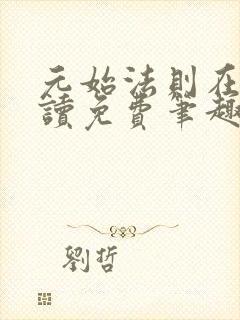 元始法則在
讀免費筆趣
劉哲